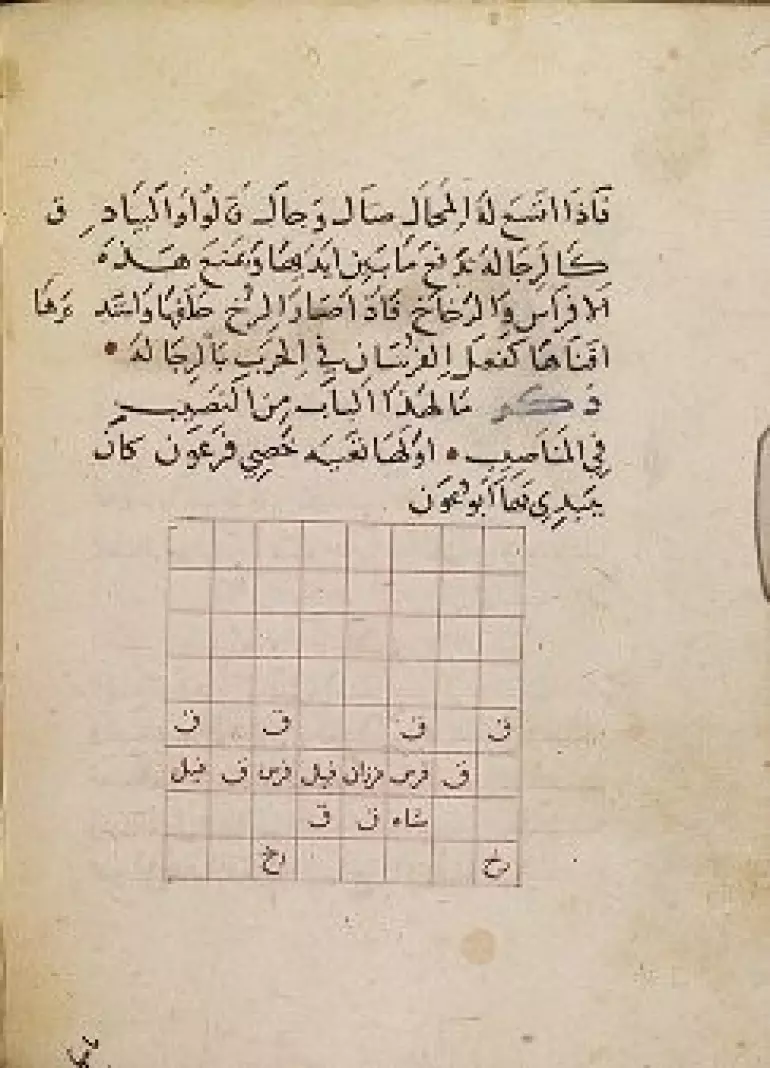 فاذا اتسع له المجال صال وجال قالوا والبيادق
كالرجالة تدفع ما بين ايديها وتمنع هذه
الافراس والرخاخ فاذا صار الرخ خلفها واستد
افناها كفعل الفرسان في الحرب بالرجالة
ذكر ما لهذا الباب من النصيب
في المناصيب اولها تعبيه خصي فرعون كان
يبتدي بها ابو
ق ق ق ق
ق فرس فرزان فيل فرس ق فيل
شاه ق ق
رخ رخ